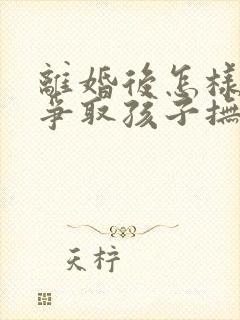 離婚後怎樣
爭取孩子撫
天梓